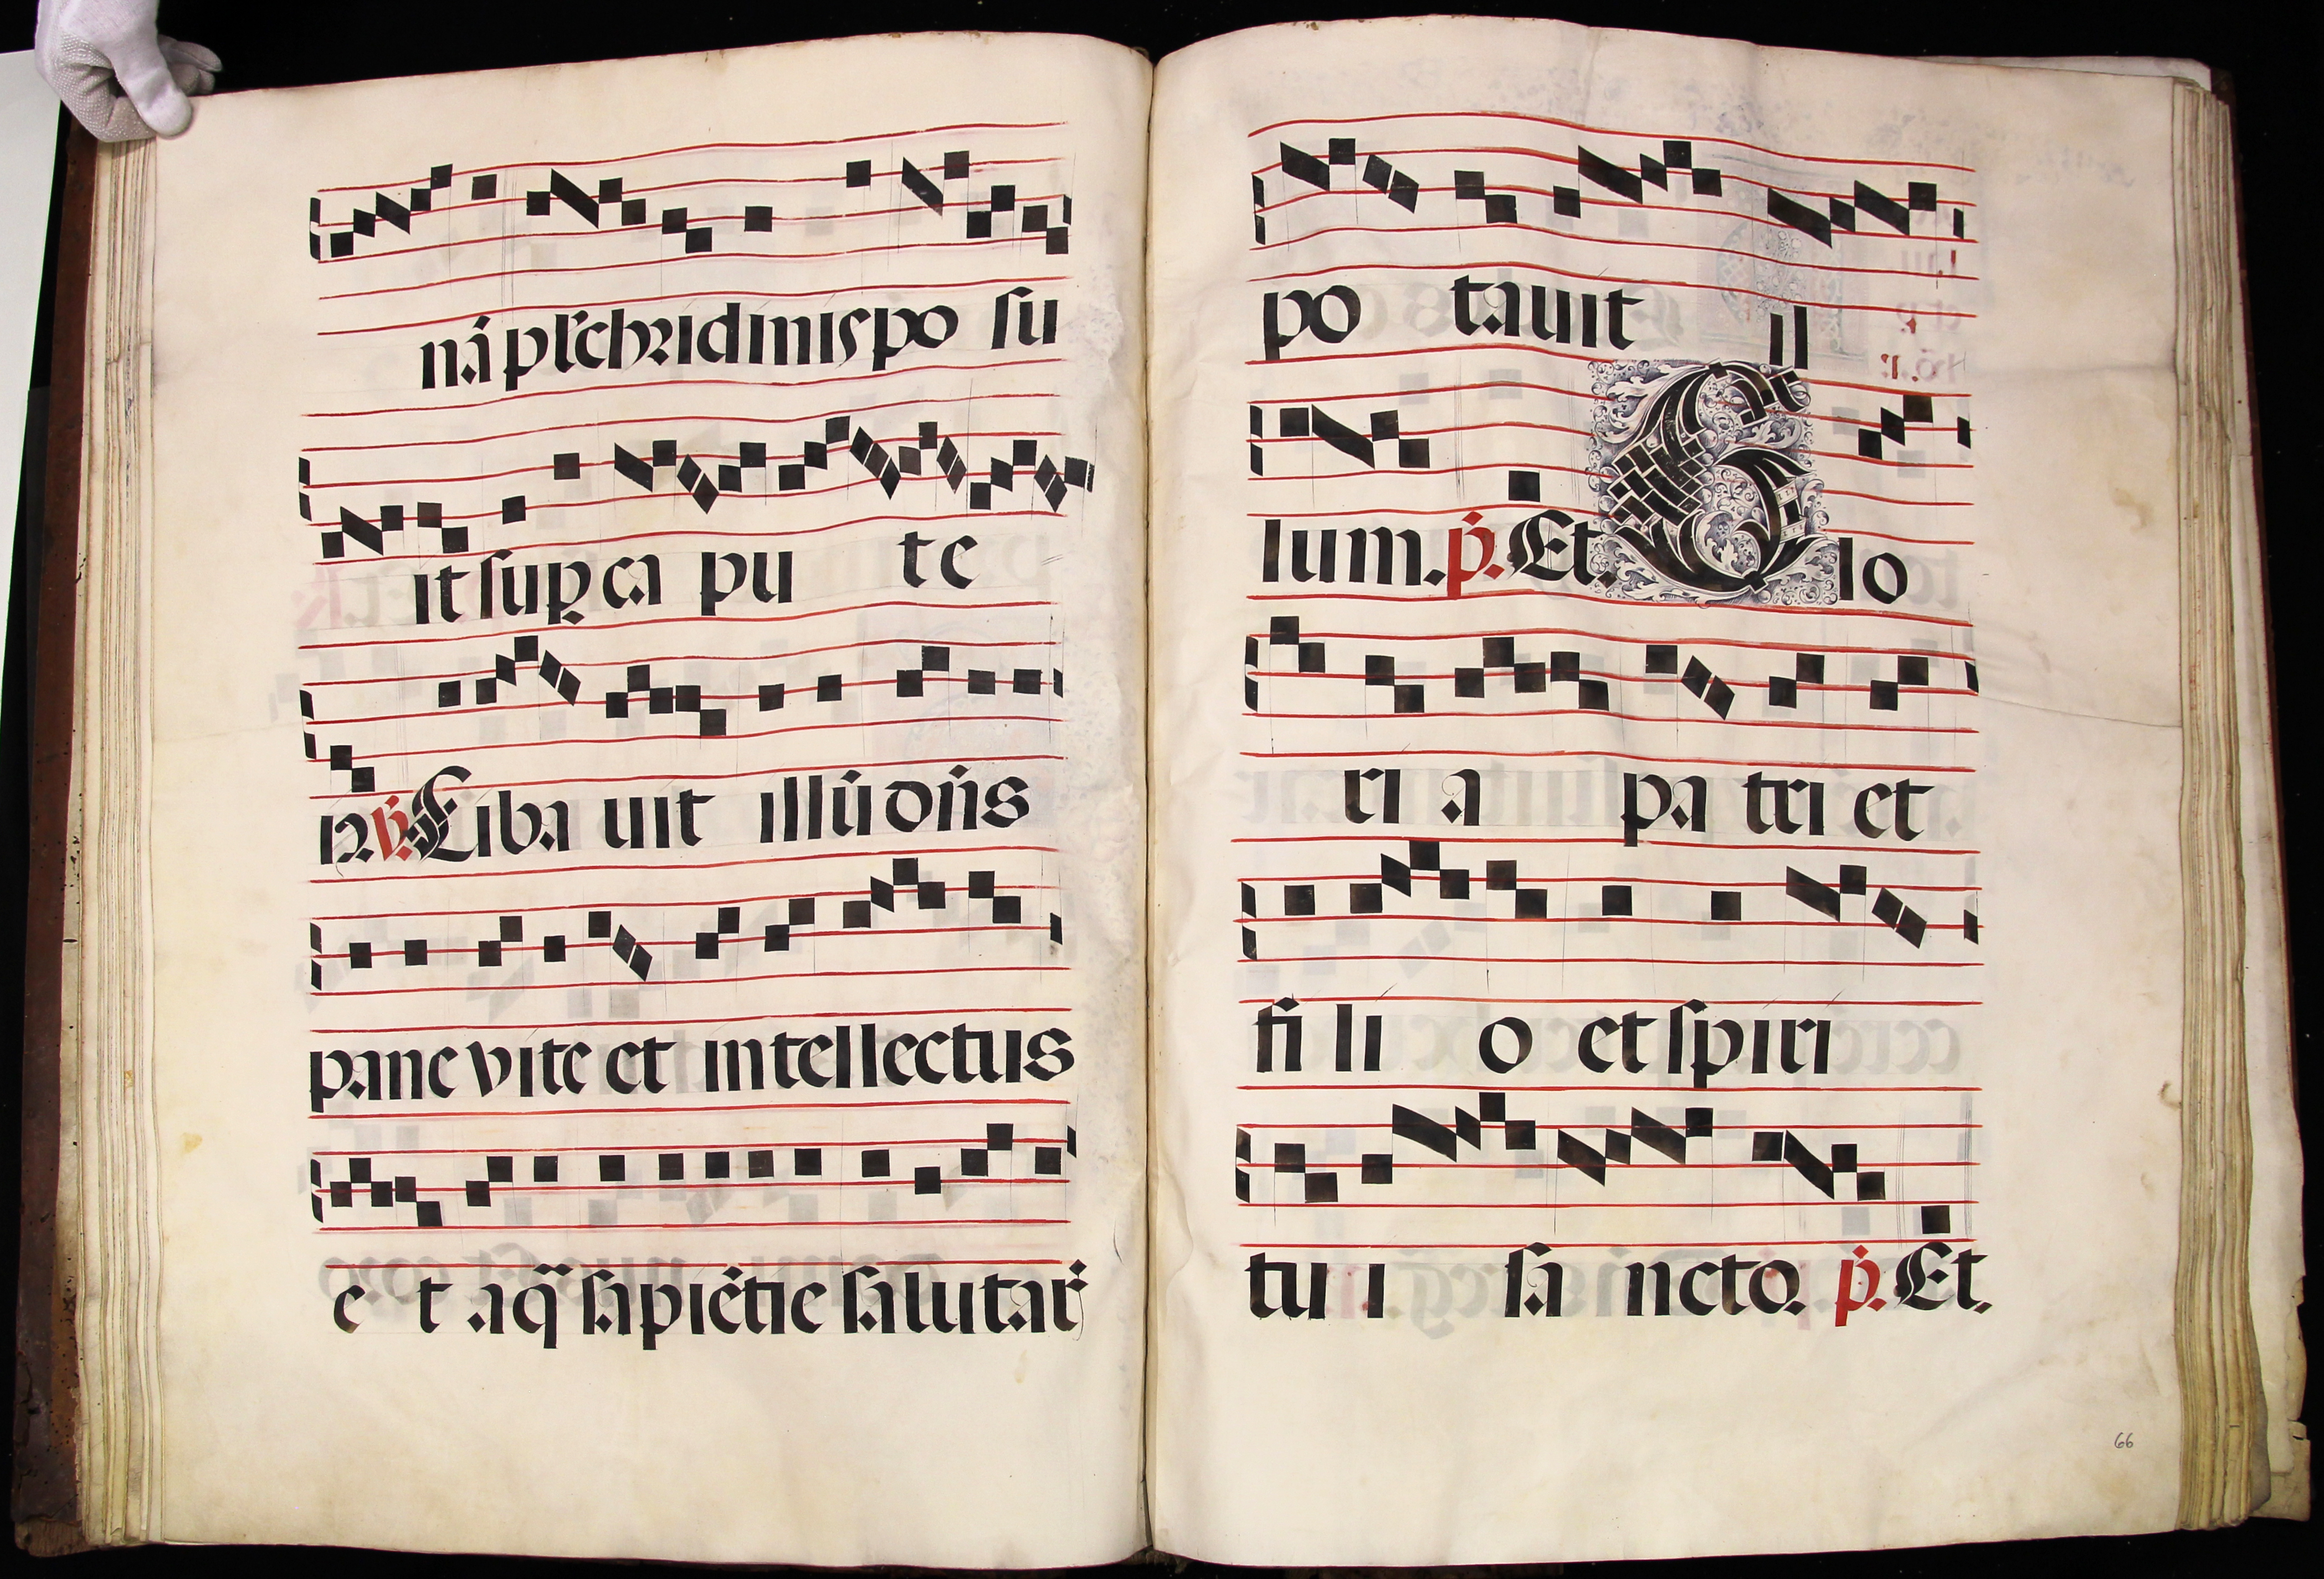 nā pl̄chridinis po su
it sup̱ ca pu te
iꝰ. ℣. Ciba uit illū dn̄s
pane vite et intellectus
e t aq̄ sapiētie salutar̄
po tauit il
lum. p̄. Et. Glo
ri a pa tri et
fi li o et spiri
tu i sa ncto. p̄. Et.
66